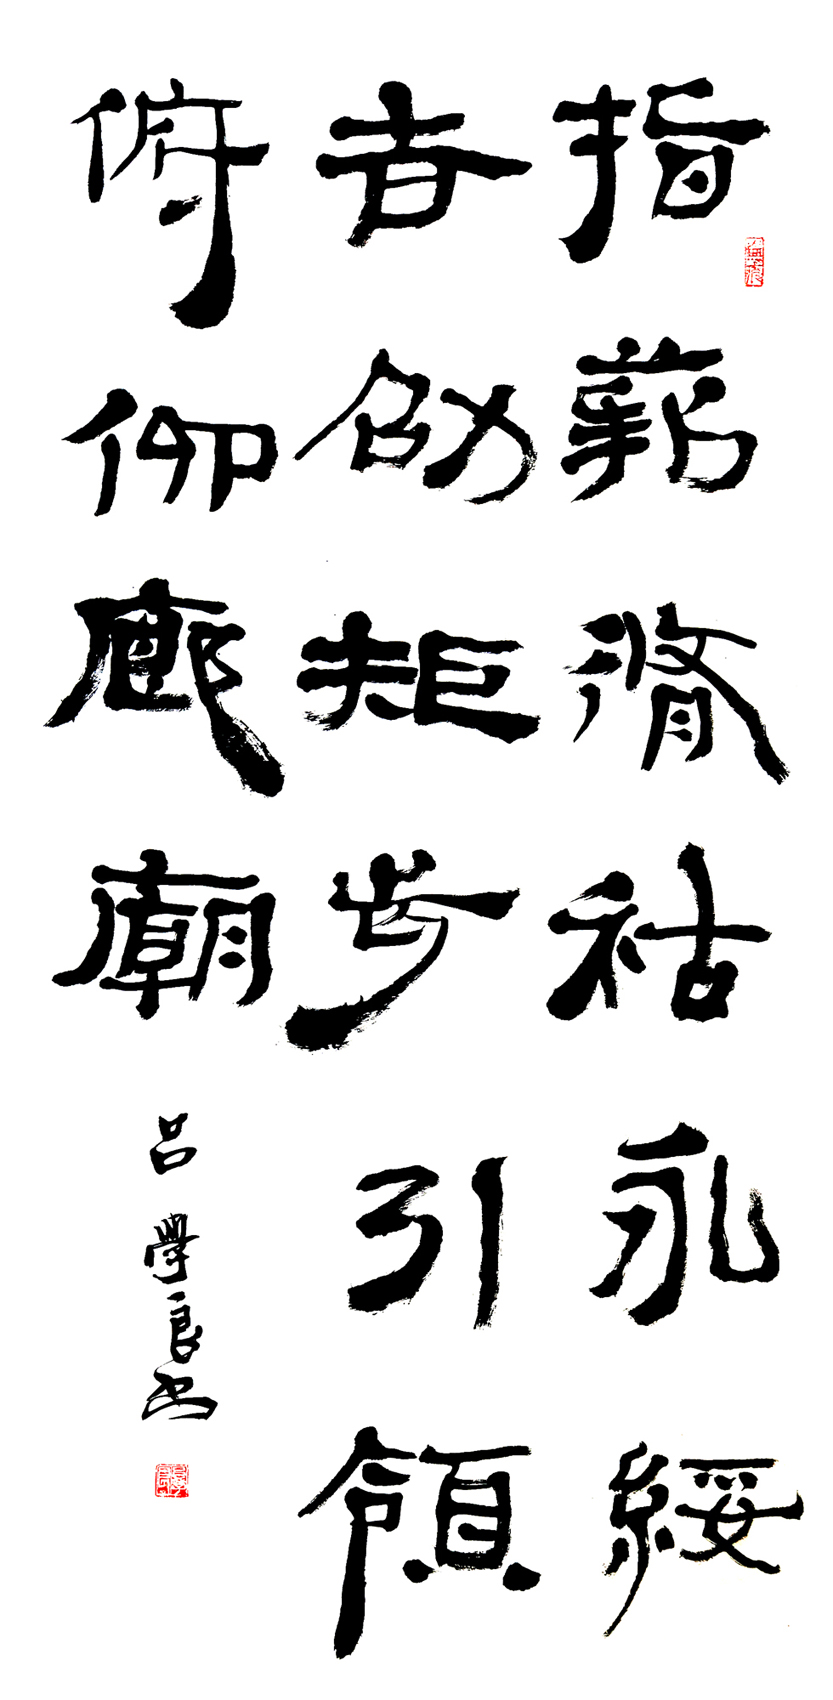 指薪脩祜永綏
吉劭矩步引領
俯仰廊廟
呂學良書